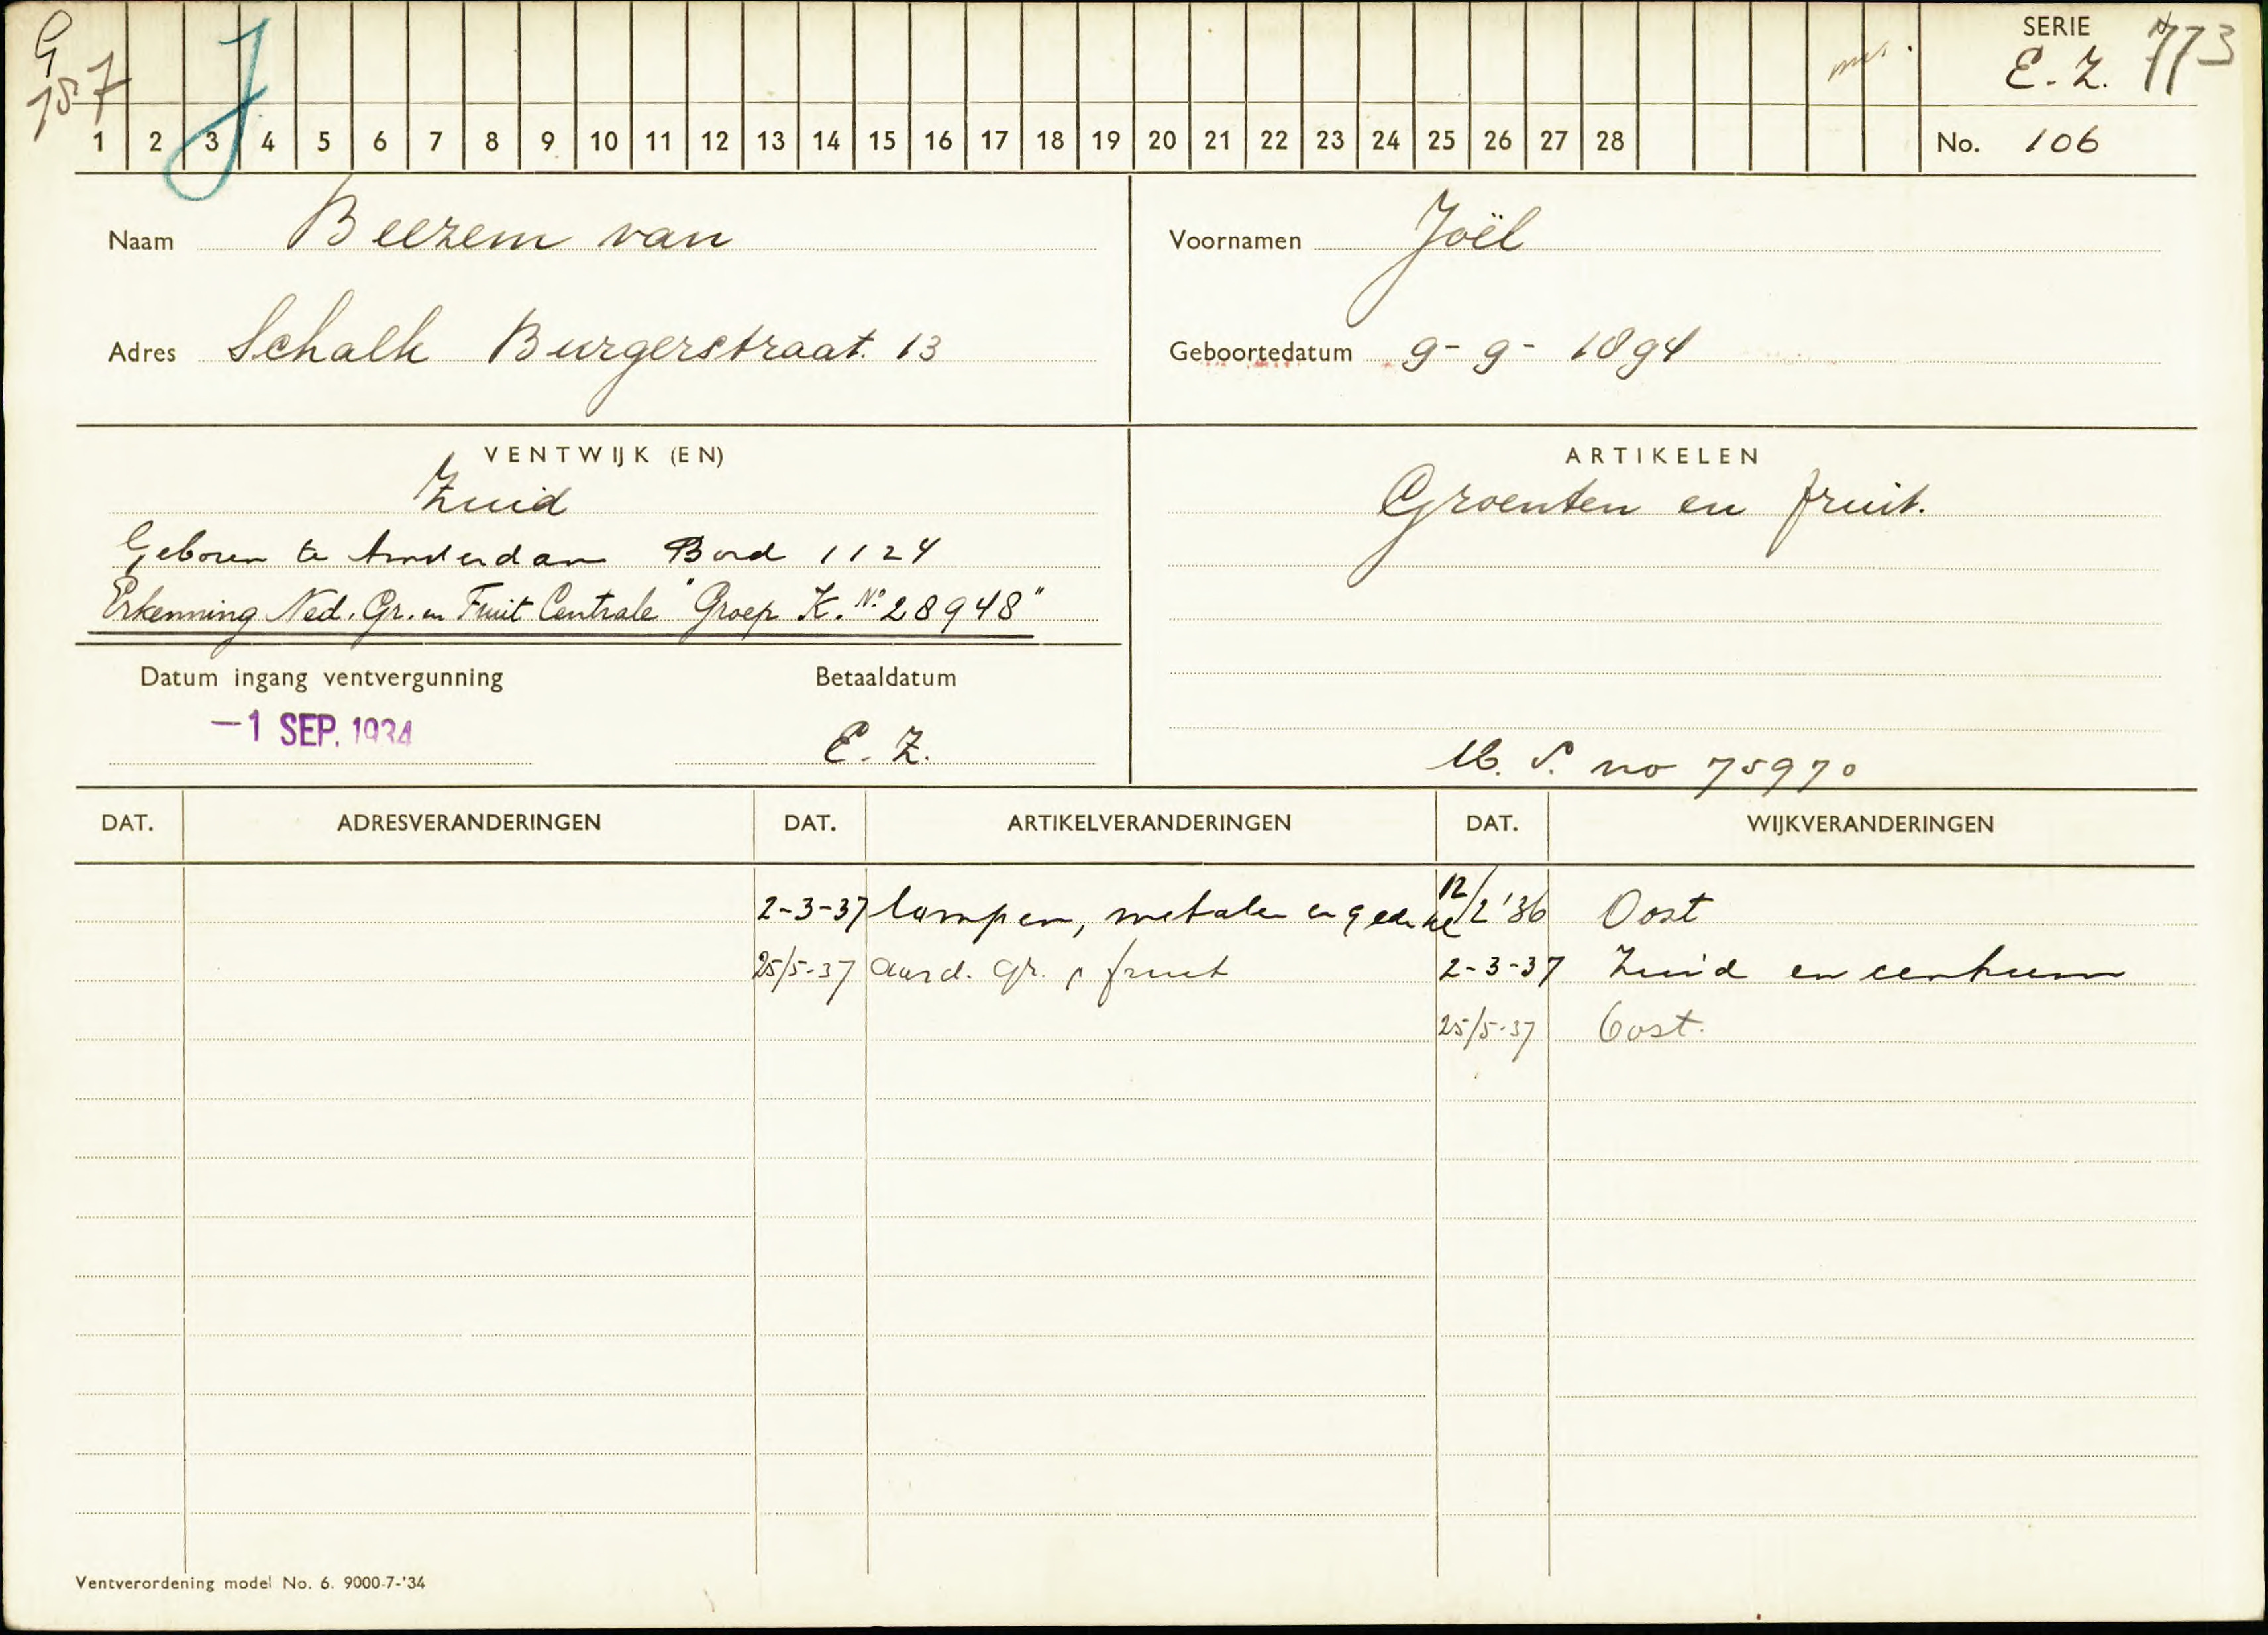 G
787
J
SERIE
E. Z.
773
1 2 3 4 5 6 7 8 9 10 11 12 13 14 15 16 17 18 19 20 21 22 23 24 25 26 27 28
No. 106
Naam Beezem van
Voornamen Joël
Adres Schalk Burgerstraat. 13
Geboortedatum 9-9-1894
VENTWIJK (EN)
Zuid
Geboren te Amsterdam Bord 1124
Erkenning Ned. Gr. en Fruit Centrale "Groep K. No 28948"
ARTIKELEN
Groenten en fruit.
Datum ingang ventvergunning
-1 SEP. 1934
Betaaldatum
E. Z.
M. S. no 75970
DAT. ADRESVERANDERINGEN DAT. ARTIKELVERANDERINGEN DAT. WIJKVERANDERINGEN
2-3-37 lompen, metalen en 12/2 '36 Oost
25/5-37 Aard. gr. fruit 2-3-37 Zuid en centrum
25/5-37 Oost.
Ventverordening model No. 6. 9000-7-'34